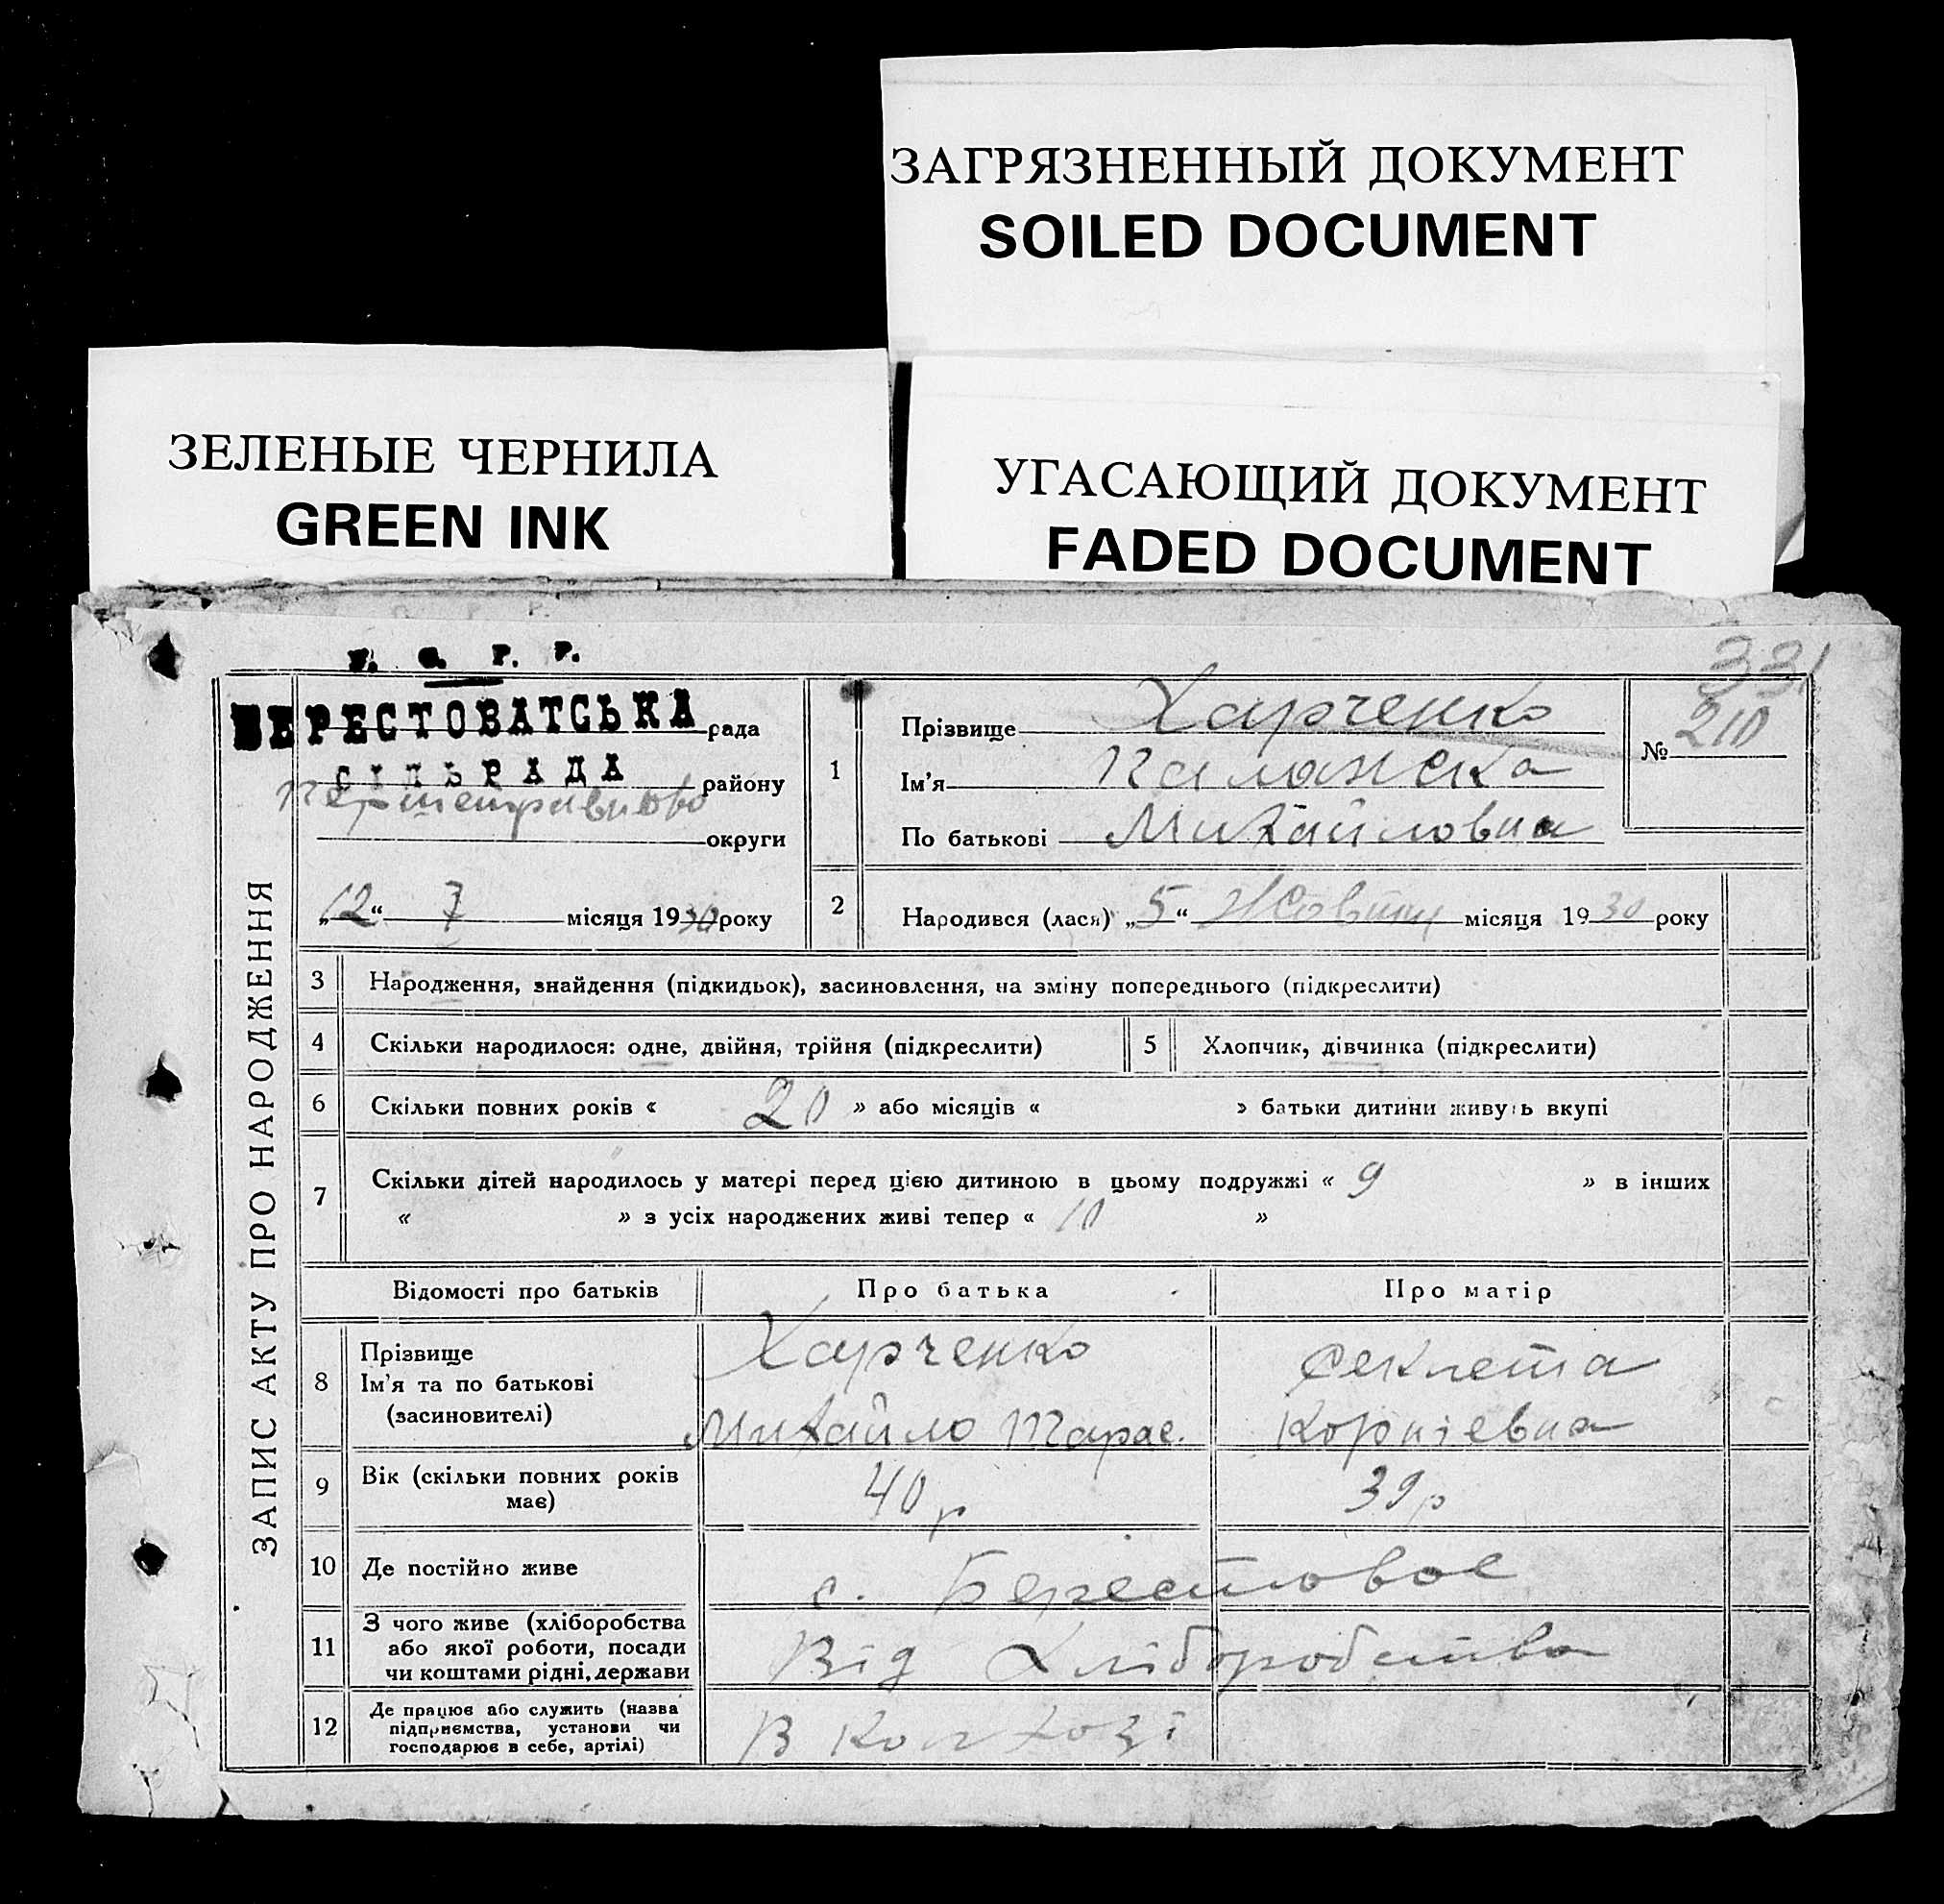 ЗАГРЯЗНЕННЫЙ ДОКУМЕНТ
SOILED DOCUMENT
ЗЕЛЕНЫЕ ЧЕРНИЛА
GREEN INK
УГАСАЮЩИЙ ДОКУМЕНТ
FADED DOCUMENT
331
У. С. Р. Р.
БЕРЕСТОВАТСЬКА рада
СІЛЬРАДА району
округи
„12“ 7 місяця 1930 року
ЗАПИС АКТУ ПРО НАРОДЖЕННЯ
1 Прізвище Харченко
Ім’я Палажка
По батькові Михайловна
№ 210
2 Народився (лася) „5“ місяця 1930 року
3 Народження, знайдення (підкидьок), засиновлення, на зміну попереднього (підкреслити)
4 Скільки народилося: одне, двійня, трійня (підкреслити) 5 Хлопчик, дівчинка (підкреслити)
6 Скільки повних років « 20 » або місяців « » батьки дитини живуть вкупі
7 Скільки дітей народилось у матері перед цією дитиною в цьому подружжі « 9 » в інших
« » з усіх народжених живі тепер « 10 »
Відомості про батьків Про батька Про матір
8 Прізвище
Ім’я та по батькові
(засиновителі)
Харченко
Михайло Тарас.
Секлета
Корніевна
9 Вік (скільки повних років
має)
40 р 39 р
10 Де постійно живе с. Берестовое
11 З чого живе (хліборобства
або якої роботи, посади
чи коштами рідні, держави
Від Хліборобства
12 Де працює або служить (назва
підприємства, установи чи
господарює в себе, артілі)
В Колхозі